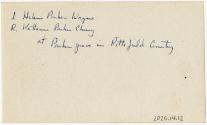 L Helen Parker Wagner
R. Katherine Parker Cheney
at Parker grave in Pittsfield Cemetery
2026.14.12